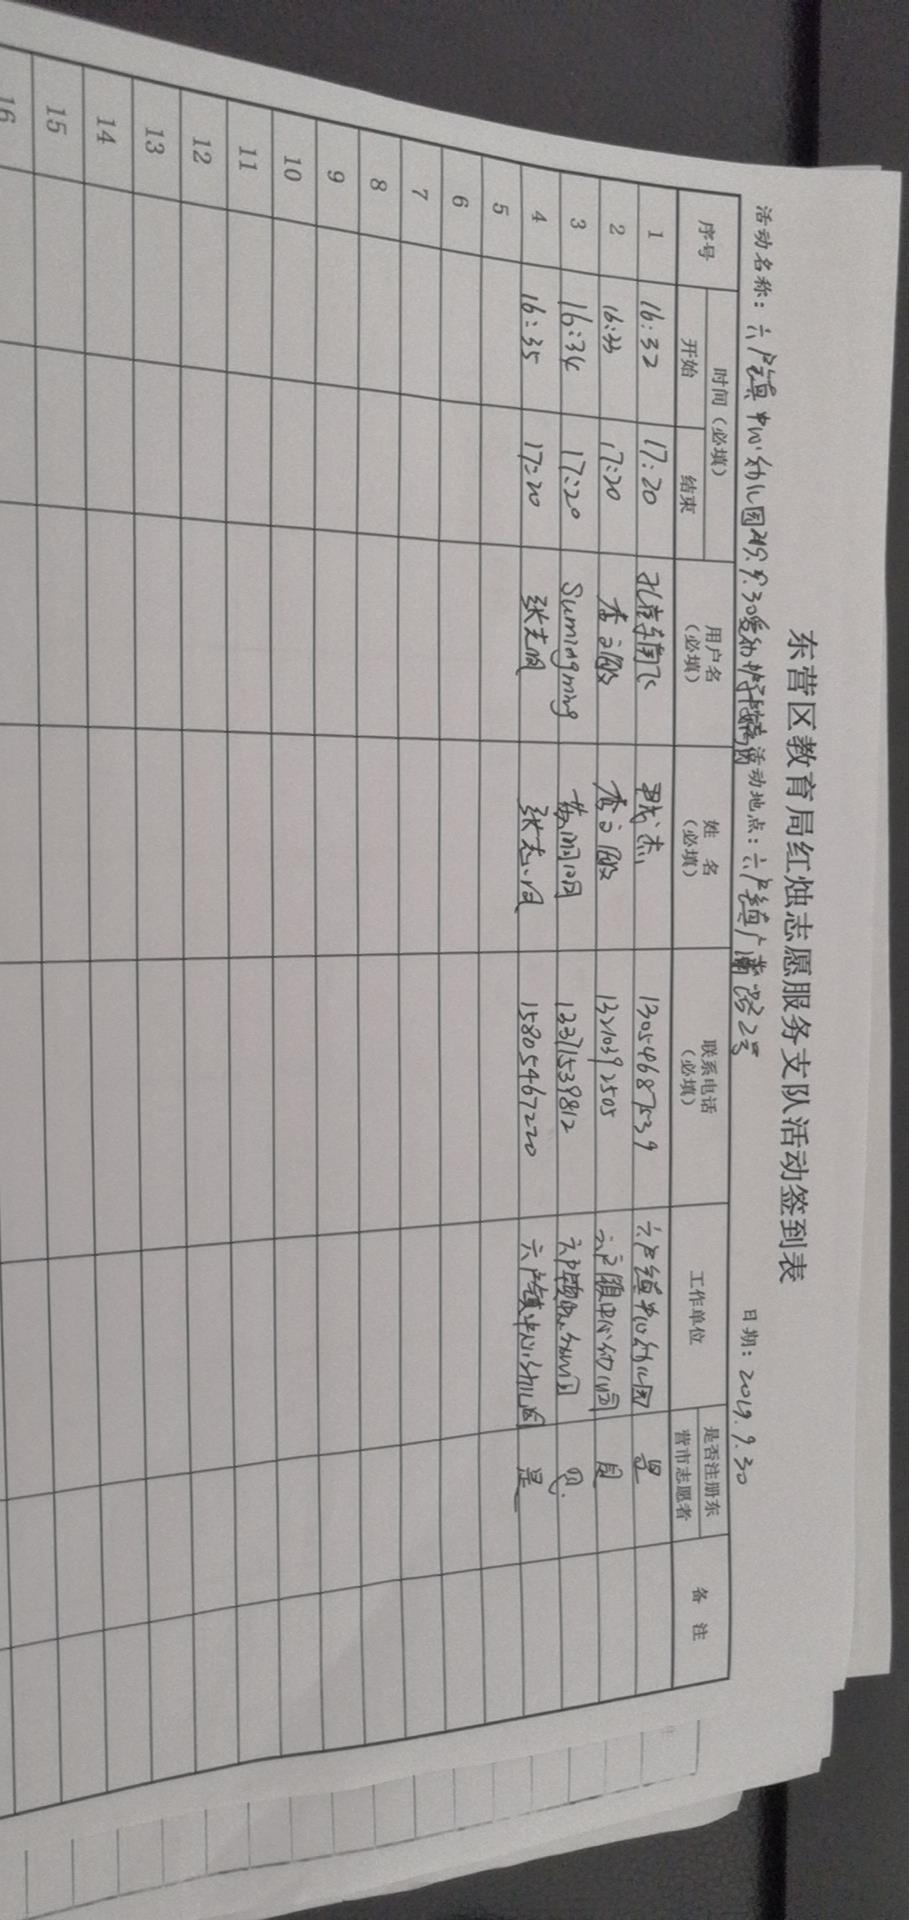 东营区教育局红烛志愿服务支队活动签到表
活动名称：六户镇中心幼儿园2019.9.30爱幼护 活动地点：六户镇广南路2号 日期：2019.9.30
序号 时间（必填） 用户名（必填） 姓 名（必填） 联系电话（必填） 工作单位 是否注册东营市志愿者 备 注
开始 结束
1 16:32 17:20 孔雀东南飞 杰 13054687539 六户镇中心幼儿园 是
2 16:33 17:20 李 13210392505 六户镇中心幼儿园 是
3 16:34 17:20 Sumingming 苏明明 13371539812 六户镇中心幼儿园 是
4 16:35 17:20 张志 张志 15805467220 六户镇中心幼儿园 是
5
6
7
8
9
10
11
12
13
14
15
16